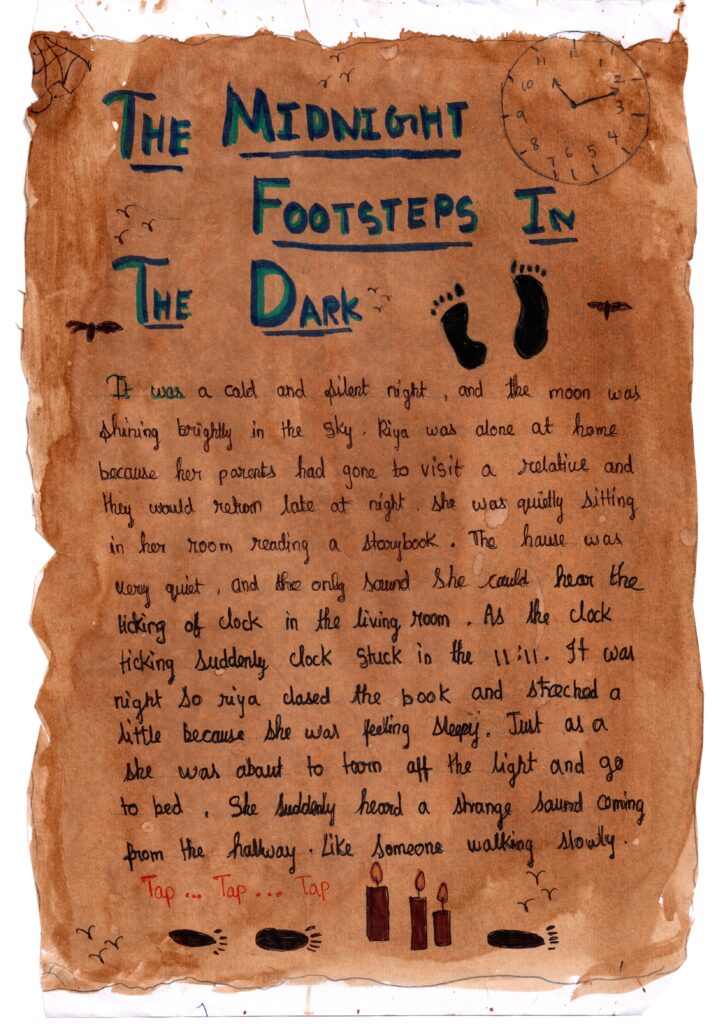 11 12 1
10 2
9 3
8 4
7 6 5
THE MIDNIGHT
FOOTSTEPS IN
THE DARK
It was a cold and silent night , and the moon was
shining brightly in the sky . Riya was alone at home
because her parents had gone to visit a relative and
they would retron late at night . she was quietly sitting
in her room reading a storybook . The hause was
very quiet , and the only saund she could hear the
ticking of clock in the living room . As the clock
ticking suddenly clock stuck in the 11:11 . It was
night so riya closed the book and streched a
little because she was feeling sleepy . Just as a
she was about to torn off the light and go
to bed , She suddenly heard a strange saund coming
from the hallway . Like someone walking slowly .
Tap ... Tap ... Tap